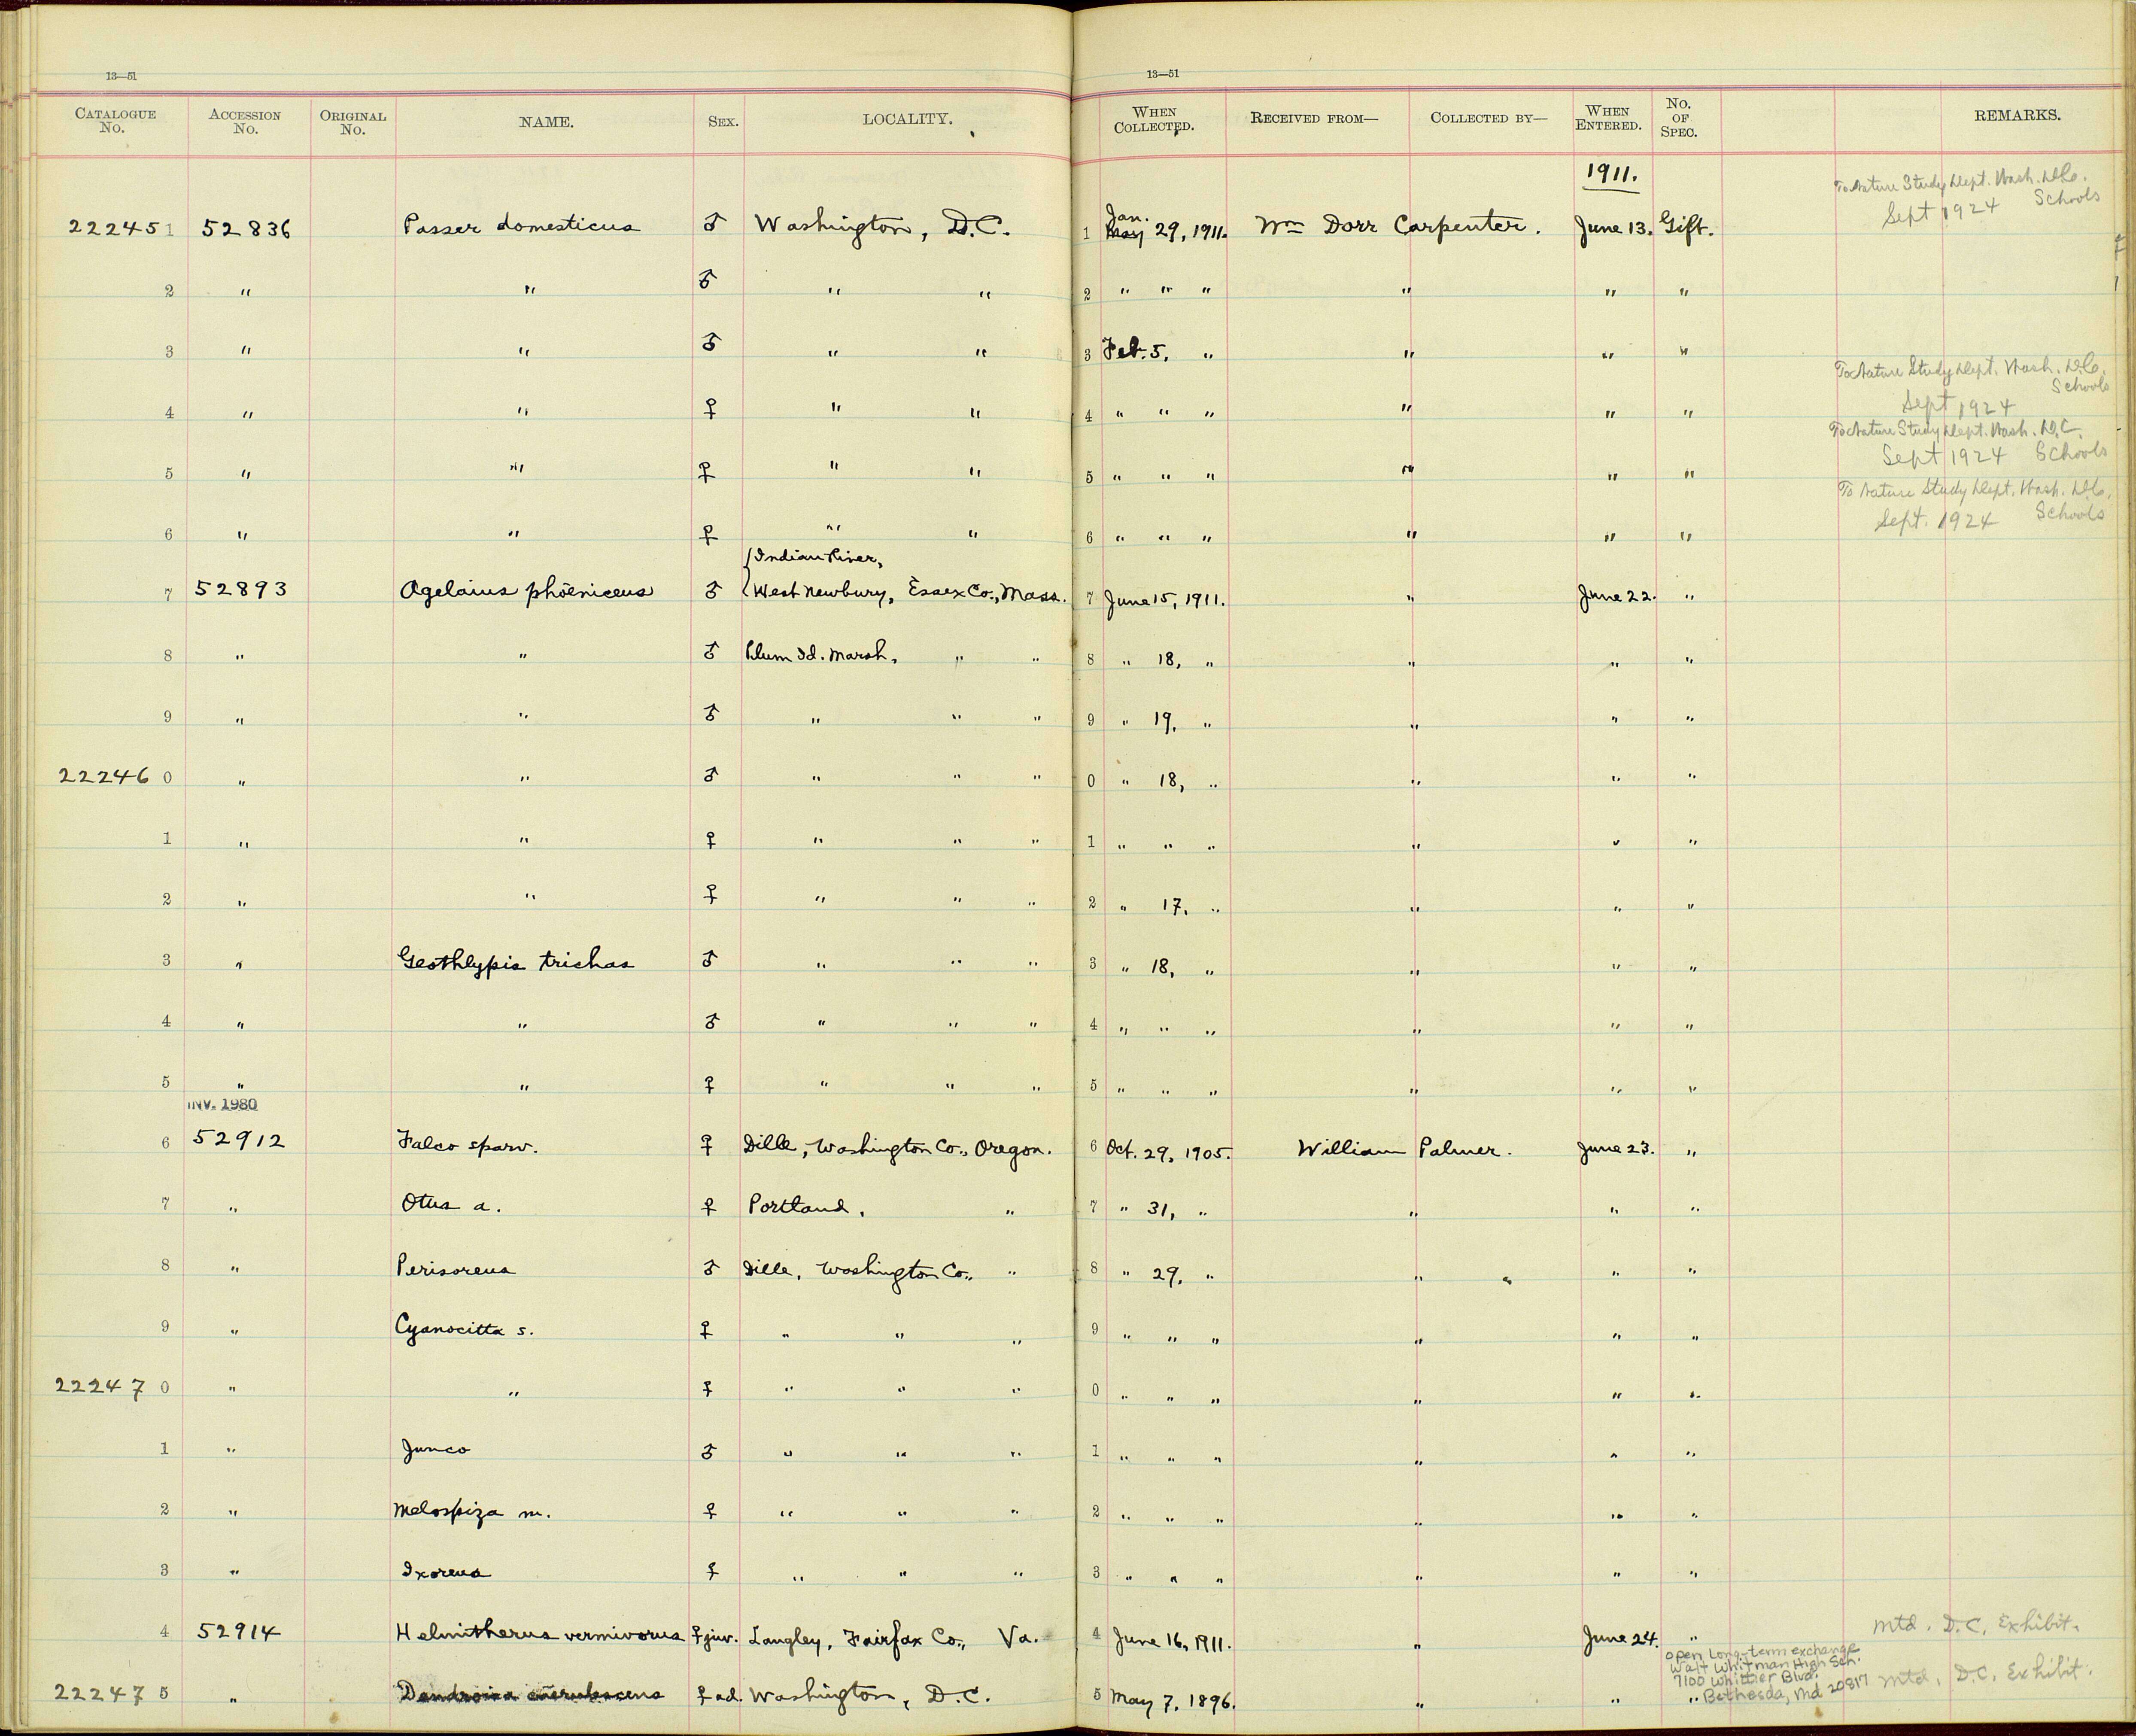 13—51 13—51
CATALOGUE No. ACCESSION No. ORIGINAL No. NAME. SEX. LOCALITY. WHEN COLLECTED. RECEIVED FROM— COLLECTED BY— WHEN ENTERED. No. OF SPEC. REMARKS.
1911.
To Nature Study Dept. Wash. D.C. Schools
Sept 1924
222451 52836 Passer domesticus ♂ Washington, D.C. 1 Jan. May 29, 1911. Wm Dorr Carpenter. June 13. Gift.
2 " " ♂ " " 2 " " " " " "
3 " " ♂ " " 3 Feb. 5, " " " "
To Nature Study Dept. Wash. D.C. Schools
Sept 1924
4 " " ♀ " " 4 " " " " " "
To Nature Study Dept. Wash. D.C.
Sept 1924 Schools
5 " " ♀ " " 5 " " " " " "
To Nature Study Dept. Wash. D.C.
Sept. 1924 Schools
6 " " ♀ " " 6 " " " " " "
Indian River,
7 52893 Agelaius phoeniceus ♂ West Newbury, Essex Co., Mass. 7 June 15, 1911. " June 22. "
8 " " ♂ Plum Id. Marsh, " " 8 " 18, " " " "
9 " " ♂ " " " 9 " 19, " " " "
222460 " " ♂ " " " 0 " 18, " " " "
1 " " ♀ " " " 1 " " " " " "
2 " " ♀ " " " 2 " 17, " " " "
3 " Geothlypis trichas ♂ " " " 3 " 18, " " " "
4 " " ♂ " " " 4 " " " " " "
5 " " ♀ " " " 5 " " " " " "
INV. 1980
6 52912 Falco sparv. ♀ Dille, Washington Co., Oregon. 6 Oct. 29, 1905. William Palmer. June 23. "
7 " Otus a. ♀ Portland, " 7 " 31, " " " "
8 " Perisoreus ♂ Dille, Washington Co., " 8 " 29, " " " " "
9 " Cyanocitta s. ♀ " " " 9 " " " " " "
222470 " " ♀ " " " 0 " " " " " "
1 " Junco ♂ " " " 1 " " " " " "
2 " Melospiza m. ♀ " " " 2 " " " " " "
3 " Ixoreus ♀ " " " 3 " " " " " "
4 52914 Helmitherus vermivorus ♀ juv. Langley, Fairfax Co., Va. 4 June 16, 1911. " June 24. " Mtd. D.C. Exhibit.
open Long-term exchange
Walt Whitman High Sch.
7100 Whittier Blvd.
Bethesda, Md 20817
222475 " Dendroica ♀ ad. Washington, D.C. 5 May 7, 1896. " " " Mtd. D.C. Exhibit.